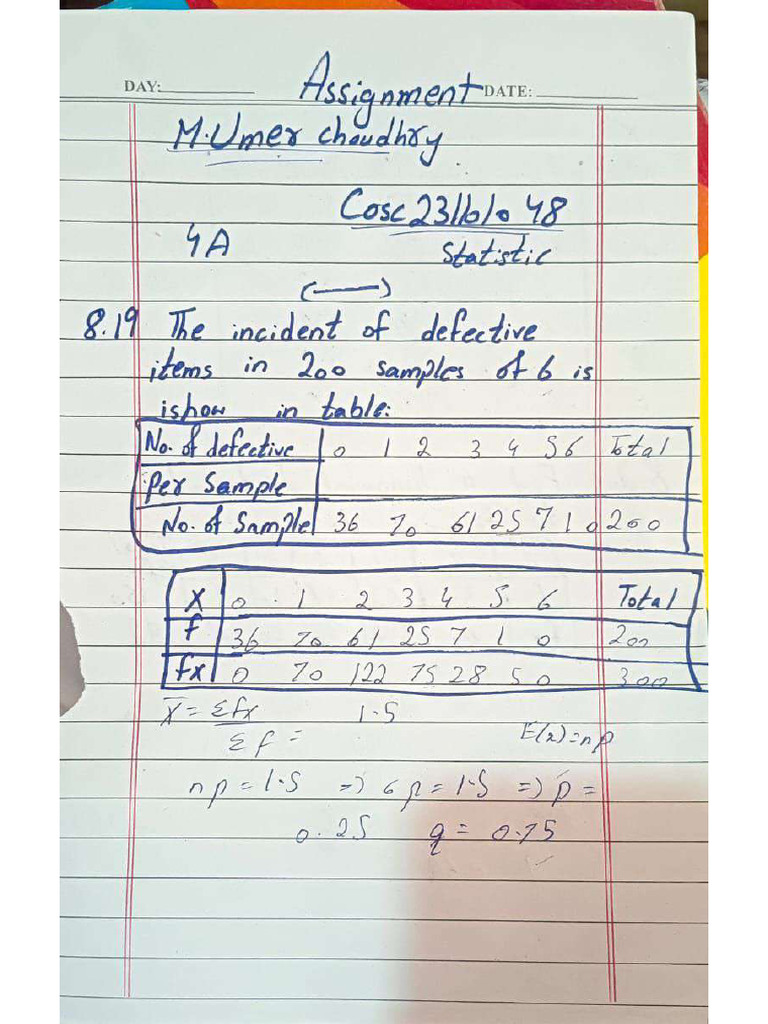 Assignment
DAY: DATE:
M.Umer Choudhry
Cosc 231101048
4A Statistic
8.19 The incident of defective
items in 200 samples of 6 is
ishow in table:
No. of defective 0 1 2 3 4 5 6 Total
Per Sample
No. of Sample 36 70 61 25 7 1 0 200
X 0 1 2 3 4 5 6 Total
f 36 70 61 25 7 1 0 200
fx 0 70 122 75 28 5 0 300
X̄ = Σfx 1.5
Σf = E(x)=np
np = 1.5 => 6p = 1.5 => p =
0.25 q = 0.75